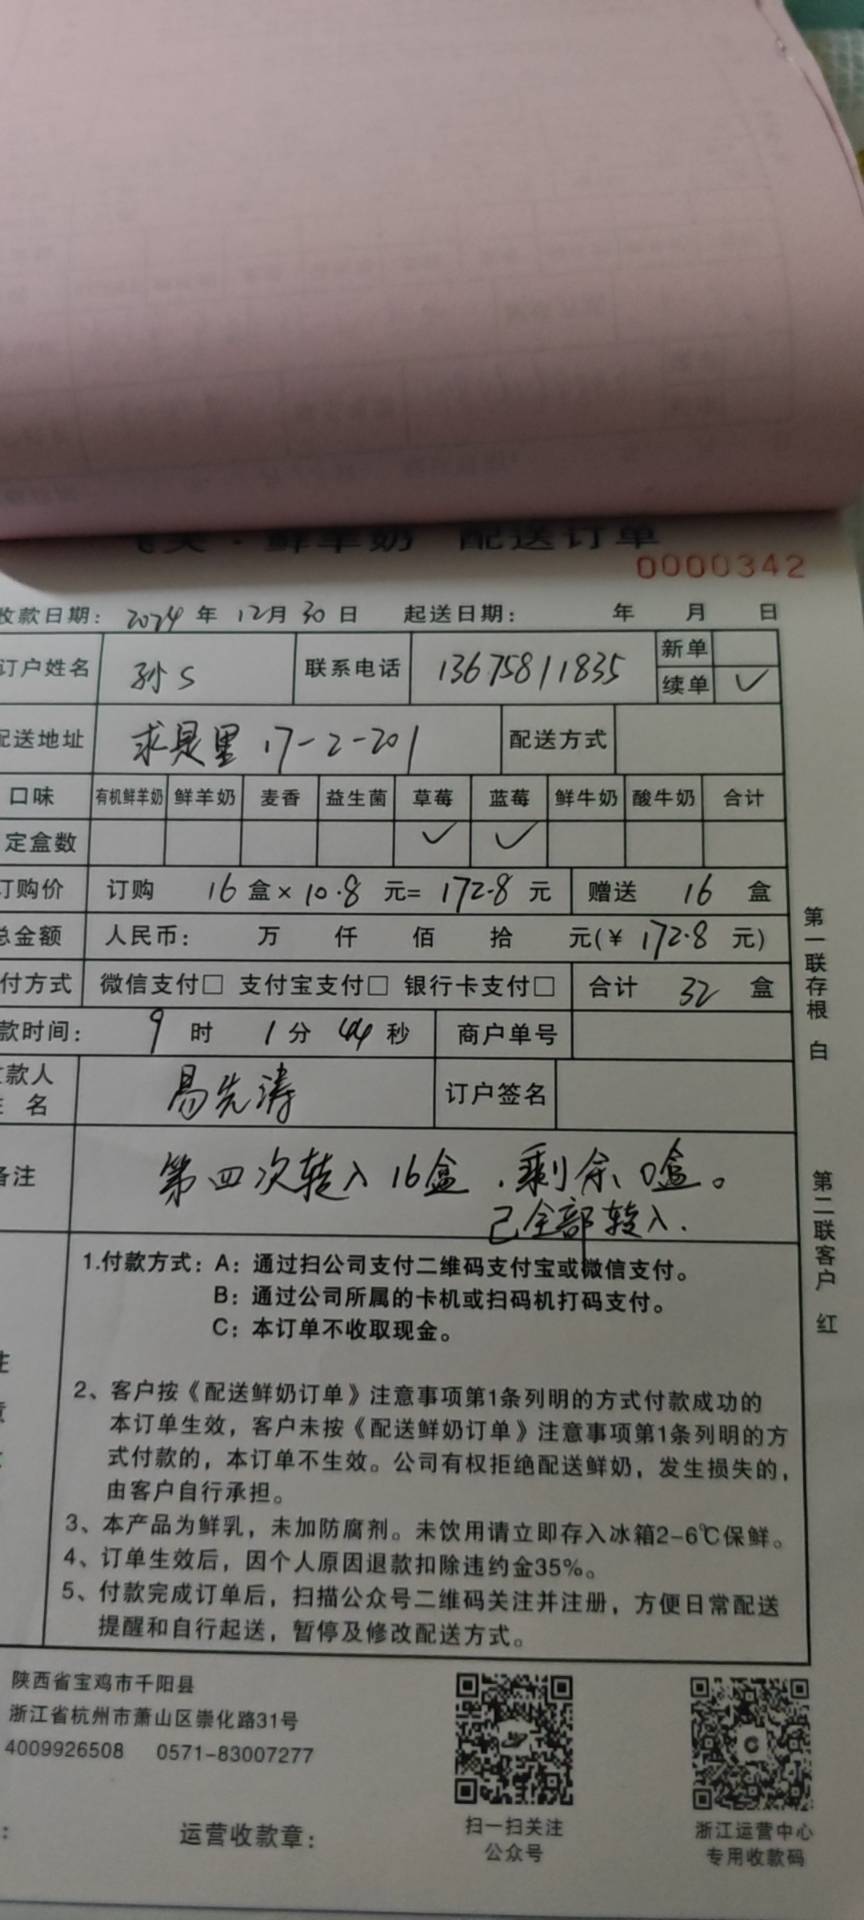 ·鲜羊奶 配送订单
0000342
收款日期: 2024年12月30日 起送日期: 年 月 日
订户姓名 孙S 联系电话 13675811835 新单
续单 ✓
配送地址 求是里 17-2-201 配送方式
口味 有机鲜羊奶 鲜羊奶 麦香 益生菌 草莓 蓝莓 鲜牛奶 酸牛奶 合计
定盒数 ✓ ✓
订购价 订购 16盒×10.8元=172.8元 赠送 16 盒
总金额 人民币: 万 仟 佰 拾 元(¥172.8元)
付方式 微信支付□ 支付宝支付□ 银行卡支付□ 合计 32 盒
款时间: 9时 1分 44秒 商户单号
款人
名 易先涛 订户签名
备注 第四次转入16盒.剩余0盒。
已全部转入.
第一联存根 白
第二联客户 红
1.付款方式: A: 通过扫公司支付二维码支付宝或微信支付。
B: 通过公司所属的卡机或扫码机打码支付。
C: 本订单不收取现金。
2、客户按《配送鲜奶订单》注意事项第1条列明的方式付款成功的
本订单生效，客户未按《配送鲜奶订单》注意事项第1条列明的方
式付款的，本订单不生效。公司有权拒绝配送鲜奶，发生损失的，
由客户自行承担。
3、本产品为鲜乳，未加防腐剂。未饮用请立即存入冰箱2-6℃保鲜。
4、订单生效后，因个人原因退款扣除违约金35%。
5、付款完成订单后，扫描公众号二维码关注并注册，方便日常配送
提醒和自行起送，暂停及修改配送方式。
陕西省宝鸡市千阳县
浙江省杭州市萧山区崇化路31号
4009926508 0571-83007277
运营收款章:
扫一扫关注
公众号
浙江运营中心
专用收款码